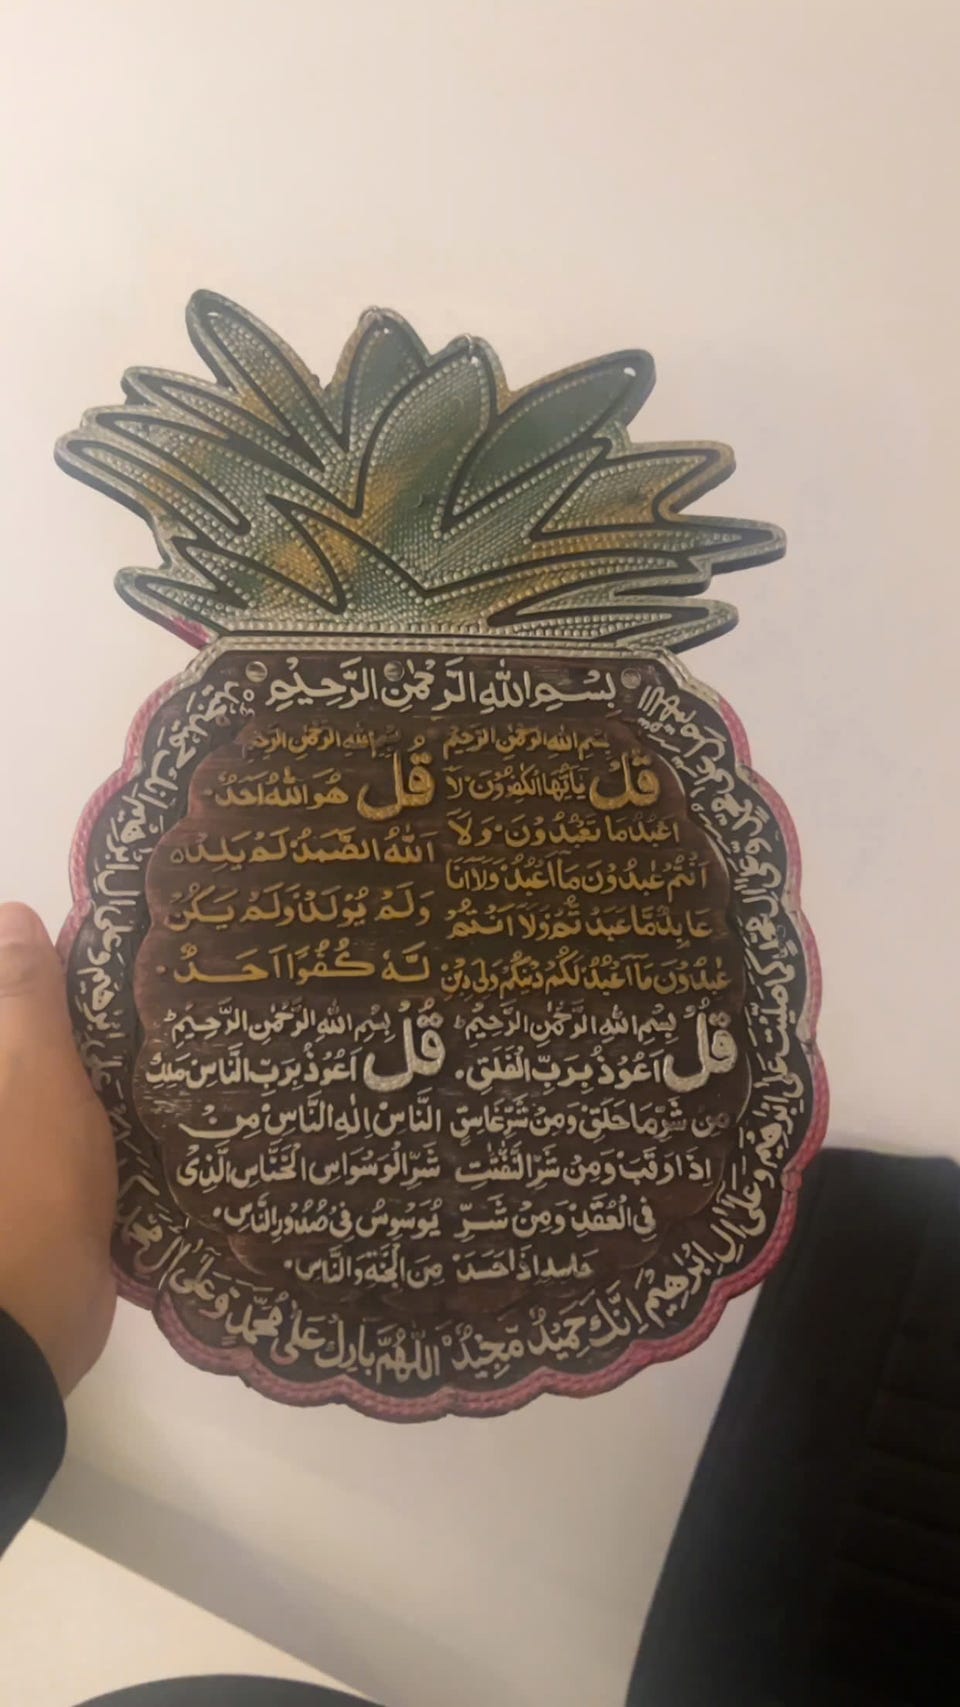 بِسْمِ اللهِ الرَّحْمٰنِ الرَّحِيْمِ
بِسْمِ اللهِ الرَّحْمٰنِ الرَّحِيْمِ
قُلْ يٰاَيُّهَا الْكٰفِرُوْنَ لَا
اَعْبُدُ مَا تَعْبُدُوْنَ وَلَا
اَنْتُمْ عٰبِدُوْنَ مَا اَعْبُدُ وَلَا اَنَا
عَابِدٌ مَّا عَبَدْتُّمْ وَلَا اَنْتُمْ
عٰبِدُوْنَ مَا اَعْبُدُ لَكُمْ دِيْنُكُمْ وَلِيَ دِيْنِ
بِسْمِ اللهِ الرَّحْمٰنِ الرَّحِيْمِ
قُلْ هُوَ اللهُ اَحَدٌ
اَللهُ الصَّمَدُ لَمْ يَلِدْ
وَلَمْ يُوْلَدْ وَلَمْ يَكُنْ
لَّهٗ كُفُوًا اَحَدٌ
بِسْمِ اللهِ الرَّحْمٰنِ الرَّحِيْمِ
قُلْ اَعُوْذُ بِرَبِّ الْفَلَقِ
مِنْ شَرِّ مَا خَلَقَ وَمِنْ شَرِّ غَاسِقٍ
اِذَا وَقَبَ وَمِنْ شَرِّ النَّفّٰثٰتِ
فِي الْعُقَدِ وَمِنْ شَرِّ
حَاسِدٍ اِذَا حَسَدَ
بِسْمِ اللهِ الرَّحْمٰنِ الرَّحِيْمِ
قُلْ اَعُوْذُ بِرَبِّ النَّاسِ مَلِكِ
النَّاسِ اِلٰهِ النَّاسِ مِنْ
شَرِّ الْوَسْوَاسِ الْخَنَّاسِ الَّذِيْ
يُوَسْوِسُ فِيْ صُدُوْرِ النَّاسِ
مِنَ الْجِنَّةِ وَالنَّاسِ
اَللّٰهُمَّ صَلِّ عَلٰى مُحَمَّدٍ وَّعَلٰى اٰلِ مُحَمَّدٍ كَمَا صَلَّيْتَ عَلٰى اِبْرٰهِيْمَ وَعَلٰى اٰلِ اِبْرٰهِيْمَ اِنَّكَ حَمِيْدٌ مَّجِيْدٌ اَللّٰهُمَّ بَارِكْ عَلٰى مُحَمَّدٍ وَّعَلٰى اٰلِ مُحَمَّدٍ اِبْرٰهِيْمَ وَعَلٰى اٰلِ اِبْرٰهِيْمَ اِنَّكَ حَمِيْدٌ مَّجِيْدٌ